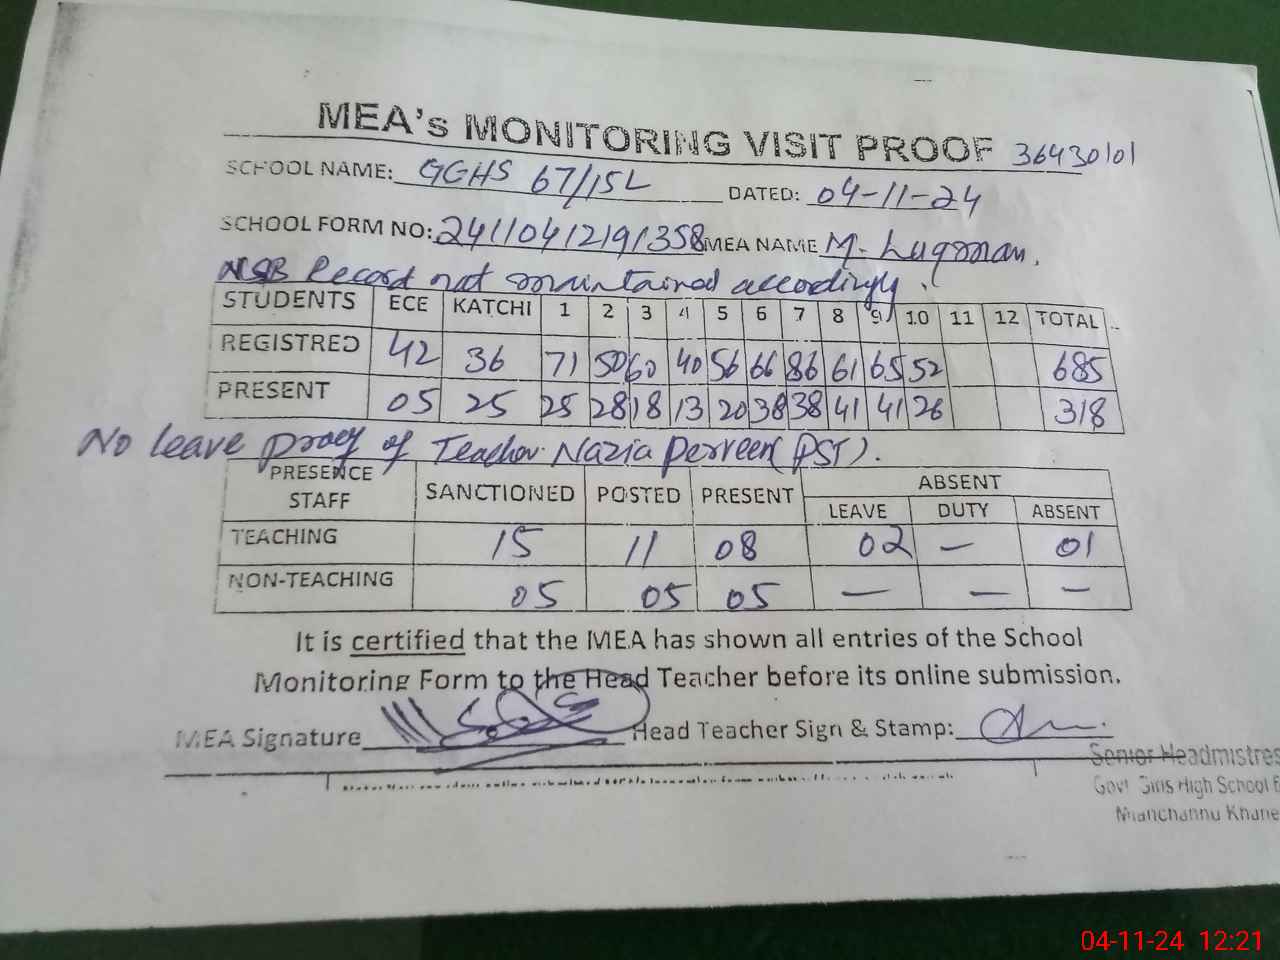 MEA's MONITORING VISIT PROOF 36430101
SCHOOL NAME: GGHS 67/15L DATED: 04-11-24
SCHOOL FORM NO: 24110412191358 MEA NAME M. Luqman.
NSB Record not maintained accordingly.
STUDENTS ECE KATCHI 1 2 3 4 5 6 7 8 9 10 11 12 TOTAL
REGISTRED 42 36 71 50 60 40 56 66 86 61 65 52 685
PRESENT 05 25 25 28 18 13 20 38 38 41 41 26 318
No leave proof of Teacher Nazia Perveen (PST).
PRESENCE STAFF SANCTIONED POSTED PRESENT ABSENT
LEAVE DUTY ABSENT
TEACHING 15 11 08 02 — 01
NON-TEACHING 05 05 05 — — —
It is certified that the MEA has shown all entries of the School
Monitoring Form to the Head Teacher before its online submission.
MEA Signature Head Teacher Sign & Stamp:
Senior Headmistres
Govt Girls High School
Mianchannu Khane
04-11-24 12:21